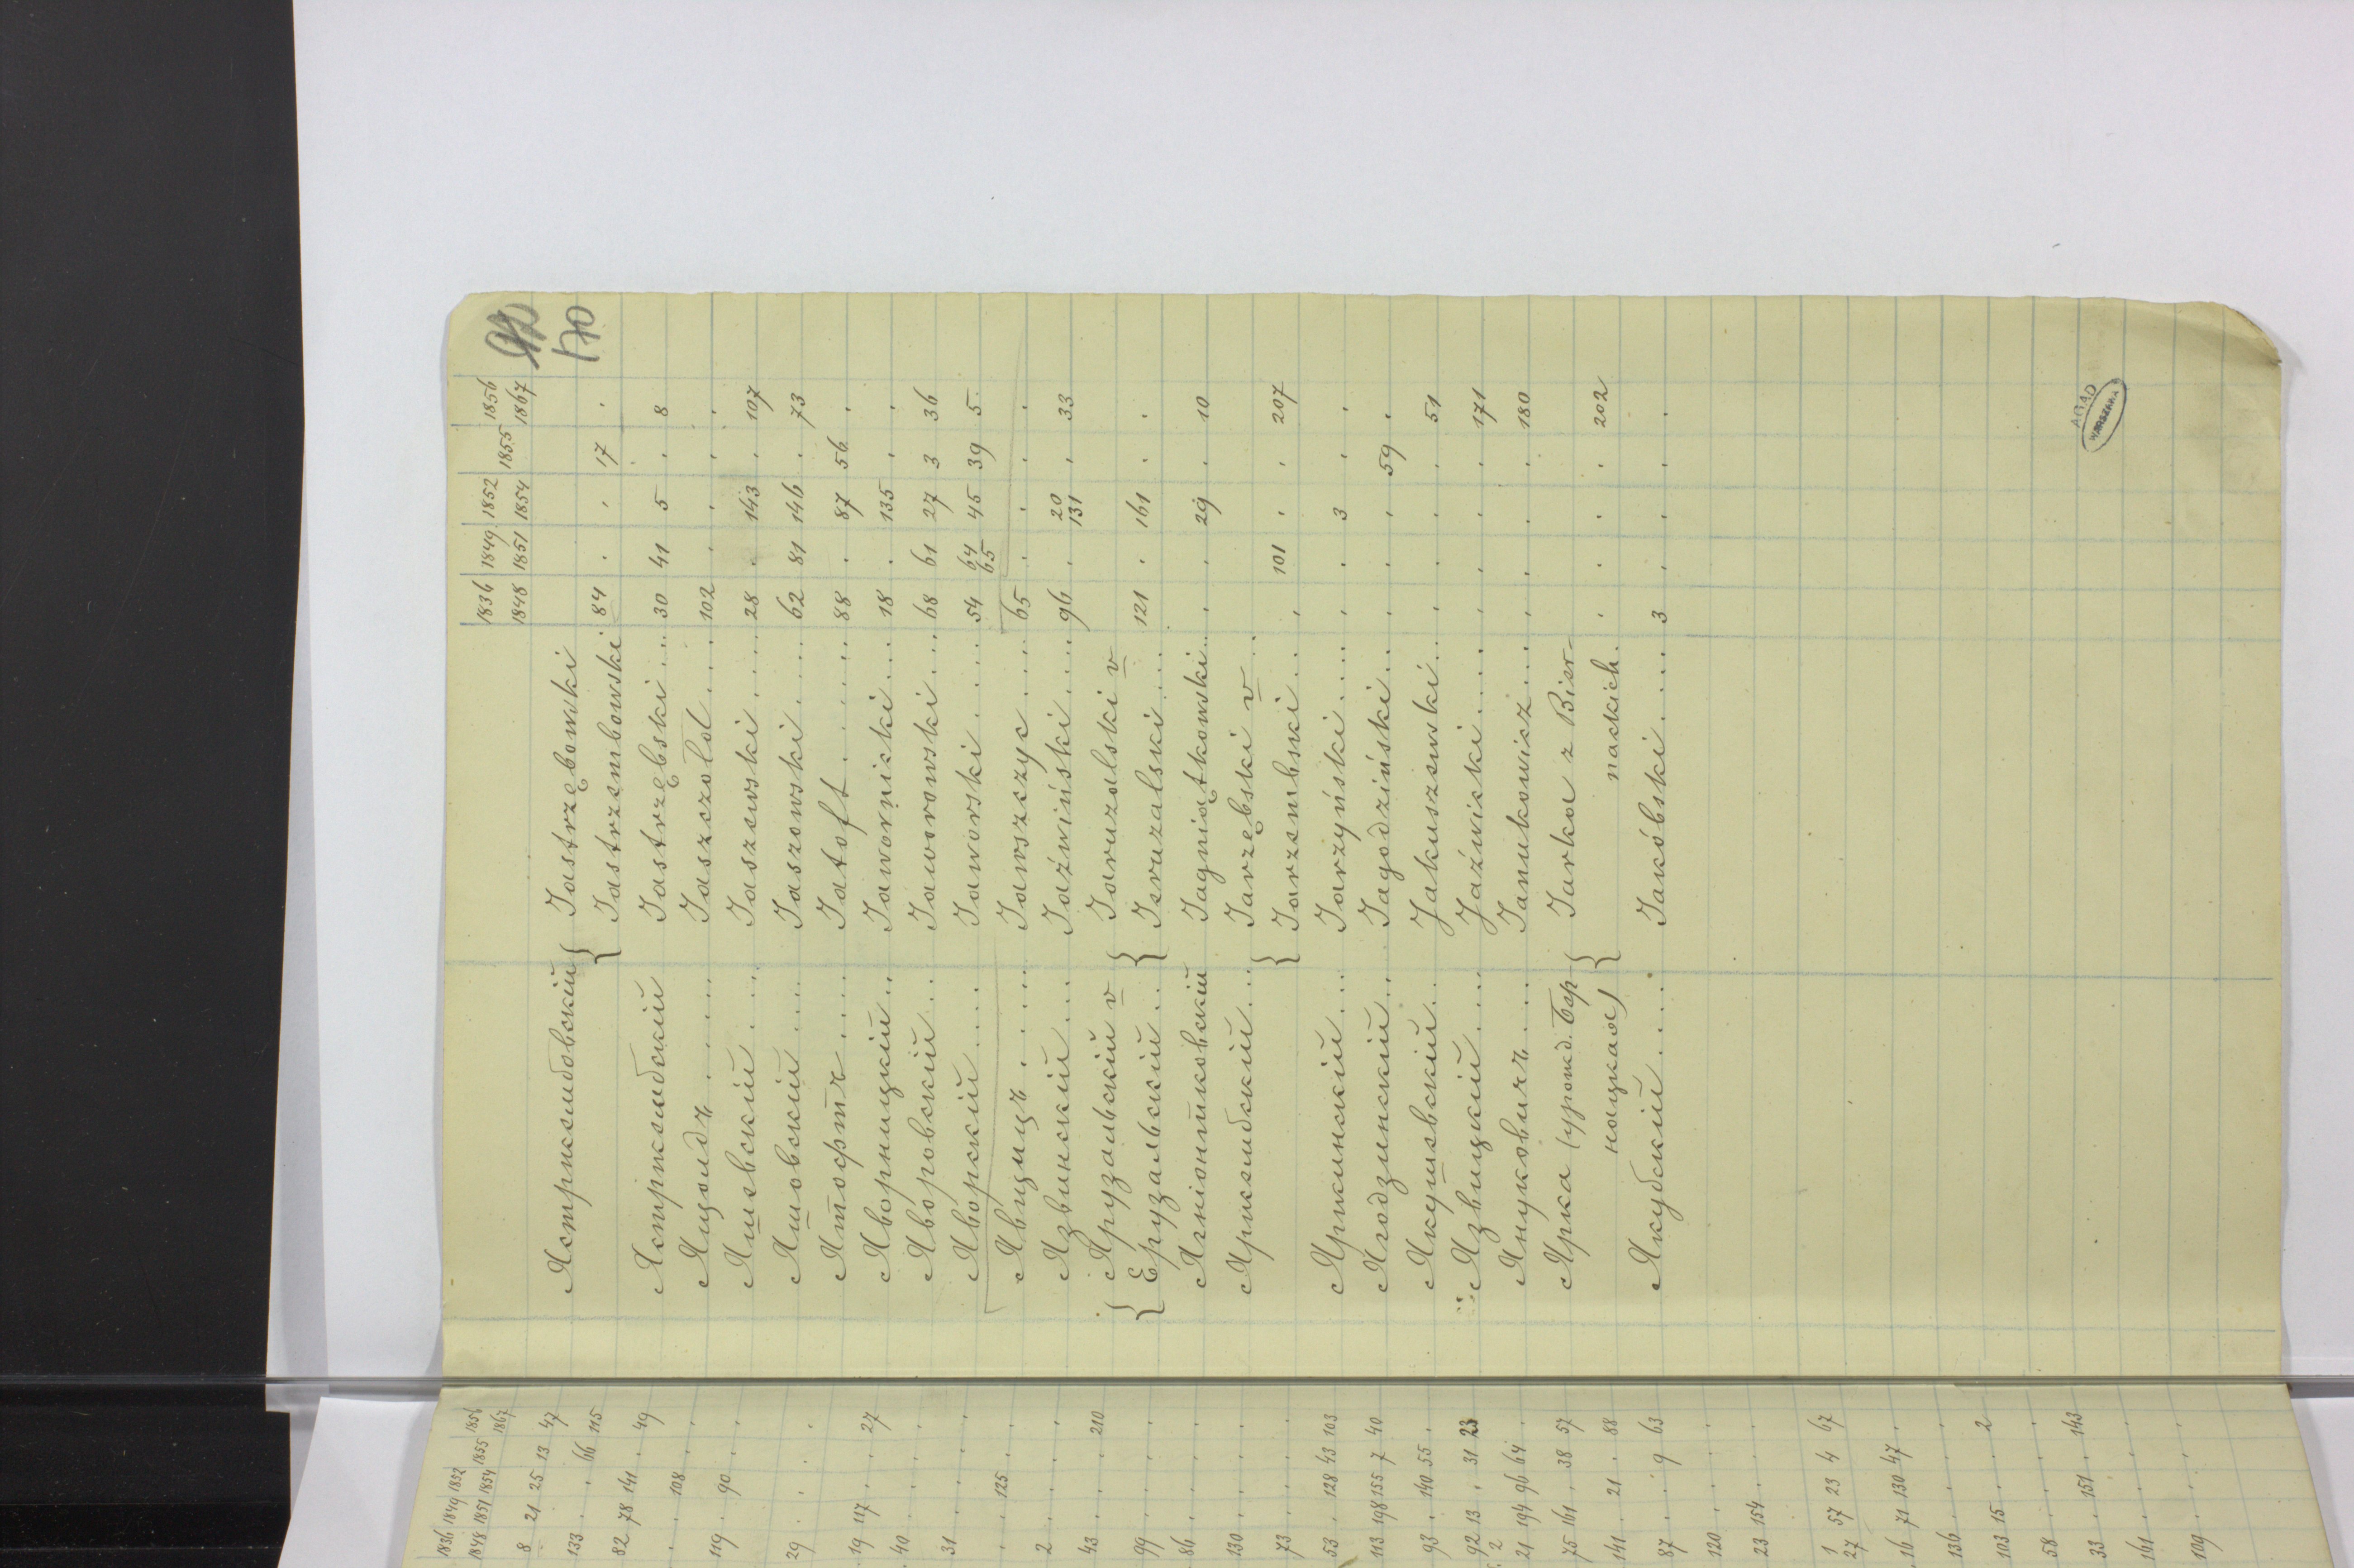 170
1836 1849 1852 1855 1856
1848 1851 1854 1867
Ястржембовскій { Jastrzębowski
Jastrzembowski 84 . . 17 .
Ястржембскій Jastrzębski ... 30 41 5 . 8
Ящолдъ ..... Jaszczołd .... 102 . . . .
Яшевскій .... Jaszewski .... 28 . 143 . 107
Яшовскій .... Jaszowski .... 62 81 146 . 73
Ятофтъ .... Jatoft ..... 88 . 87 56 .
Яворницкій .. Jawornicki ... 18 . 135 . .
Яворовскій ... Jaworowski ... 68 61 27 3 36
Яворскій .... Jaworski .... 54 64 65 45 39 5
Явщицъ ..... Jawszczyc .... 65 . . . .
Язвинскій ... Jaźwiński .... 96 . 20 131 . 33
Ярузальскій v Jaruzalski v
{ Ерузальскій .. } Jeruzalski .... 121 . 161 . .
Ягніонтковскій Jagniątkowski .. . . 29 . 10
Яржембскій ... Jarzębski v ..
{ Jarzembski ... . 101 . . 207
Яржинскій ... Jarzyński .... . . 3 . .
Ягодзинскій .. Jagodziński .. . . . 59 .
Якушевскій .. Jakuszewski .. . . . . 51
Язвицкій .... Jaźwicki .... . . . . 171
Януковичъ .... Janukowicz ... . . . . 180
Ярка (урожд. Бар- { Jarka z Bier-
нацкая) } nackich . . . . . 202
Якубскій .... Jakóbski .... 3 . . . .
AGAD
WARSZAWA
1836 1849 1852 1855 1856
1848 1851 1854 1867
8 21 25 13 47
133 . . 66 115
82 78 141 . 49
. . 108 . .
119 . 90 . .
29 . . . .
19 117 . . 27
40 . . . .
31 . . . .
. . 125 . .
2 . . . .
43 . . . 210
99 . . . .
86 . . . .
130 . . . .
73 . . . .
53 . 128 43 103
113 198 155 7 40
93 . 140 55 .
92 13 . 31 23
2
21 194 96 64 .
75 161 . 38 57
141 . 21 . 88
87 . . 9 63
120 . . . .
23 154 . . .
1 57 23 4 67
27
16 71 130 47 .
136 . . . .
103 15 . . 2
58 . . . .
33 . 151 . 143
161 . . . .
109 . . . .